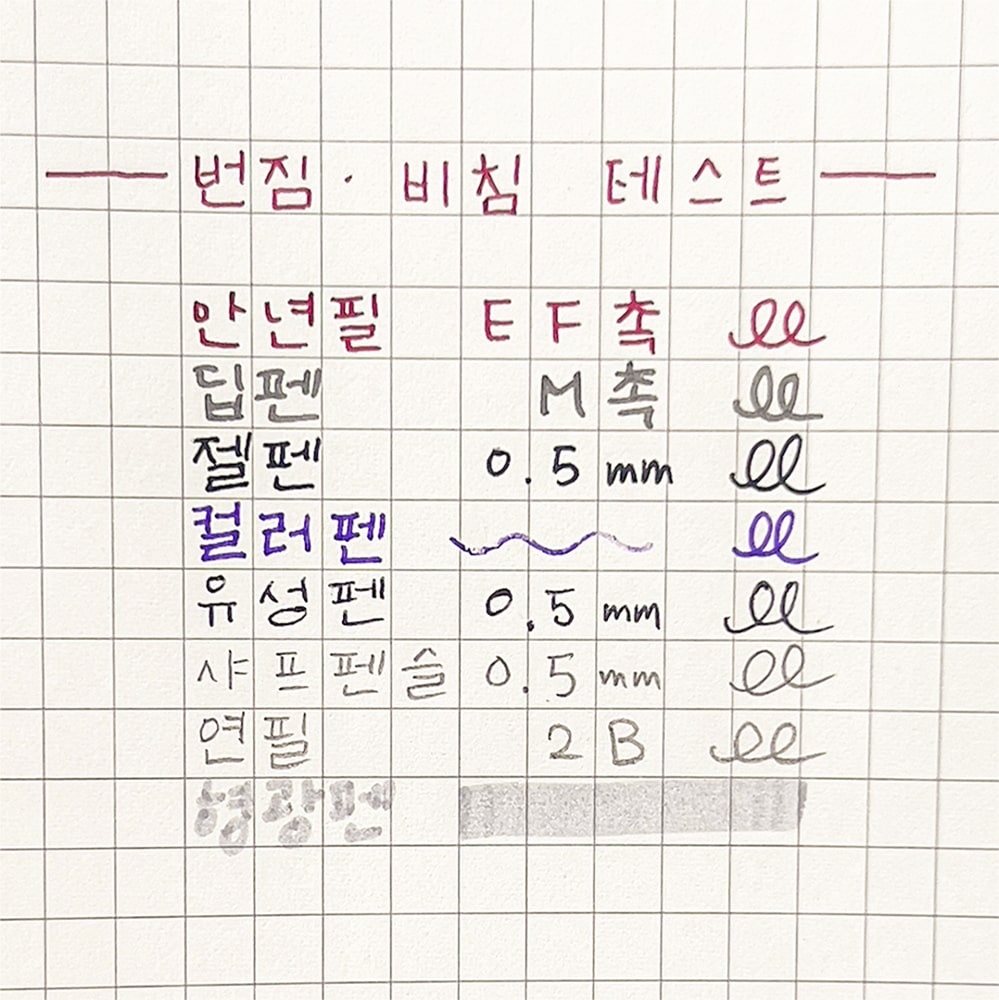 번짐 · 비침 테스트
안년필 EF촉 ll
딥펜 M촉 ll
젤펜 0.5mm ll
컬러펜 ll
유성펜 0.5mm ll
샤프펜슬 0.5mm ll
연필 2B ll
형광펜